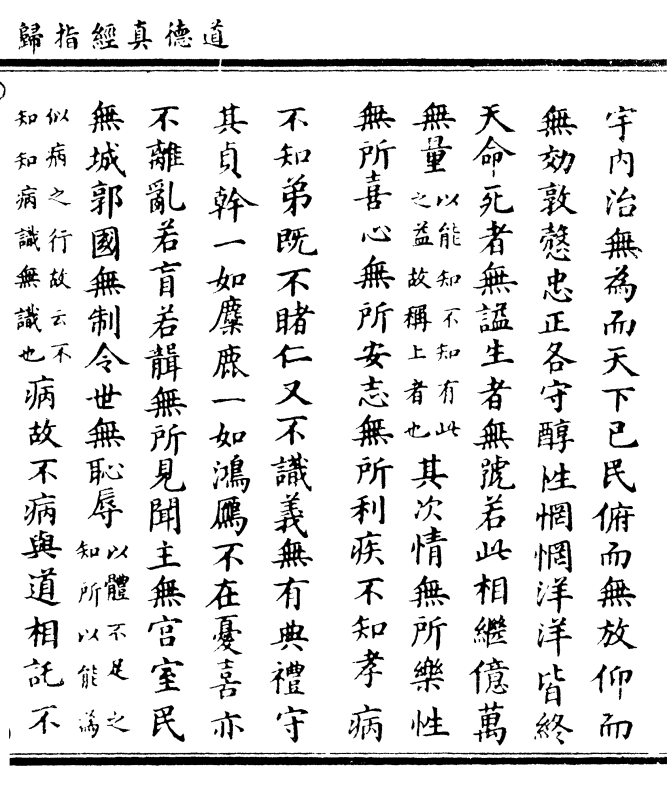 道德真經指歸
宇內治無為而天下已民俯而無放仰而
無効敦慤忠正各守醇性惘惘洋洋皆終
天命死者無謚生者無號若此相繼億萬
無量以能知不知有此之益故稱上者也其次情無所樂性
無所喜心無所安志無所利疾不知孝病
不知弟既不睹仁又不識義無有典禮守
其貞幹一如麋鹿一如鴻鴈不在憂喜亦
不離亂若盲若聾無所見聞主無宮室民
無城郭國無制令世無恥辱以體不足之知所以能為
似病之行故云不知知病識無識也病故不病與道相託不